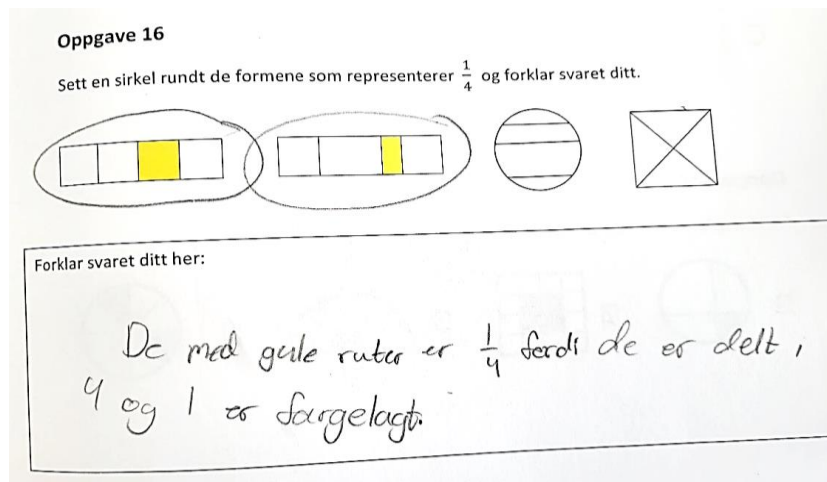 Oppgave 16
Sett en sirkel rundt de formene som representerer 1/4 og forklar svaret ditt.
Forklar svaret ditt her:
De med gule ruter er 1/4 fordi de er delt i
4 og 1 er fargelagt.